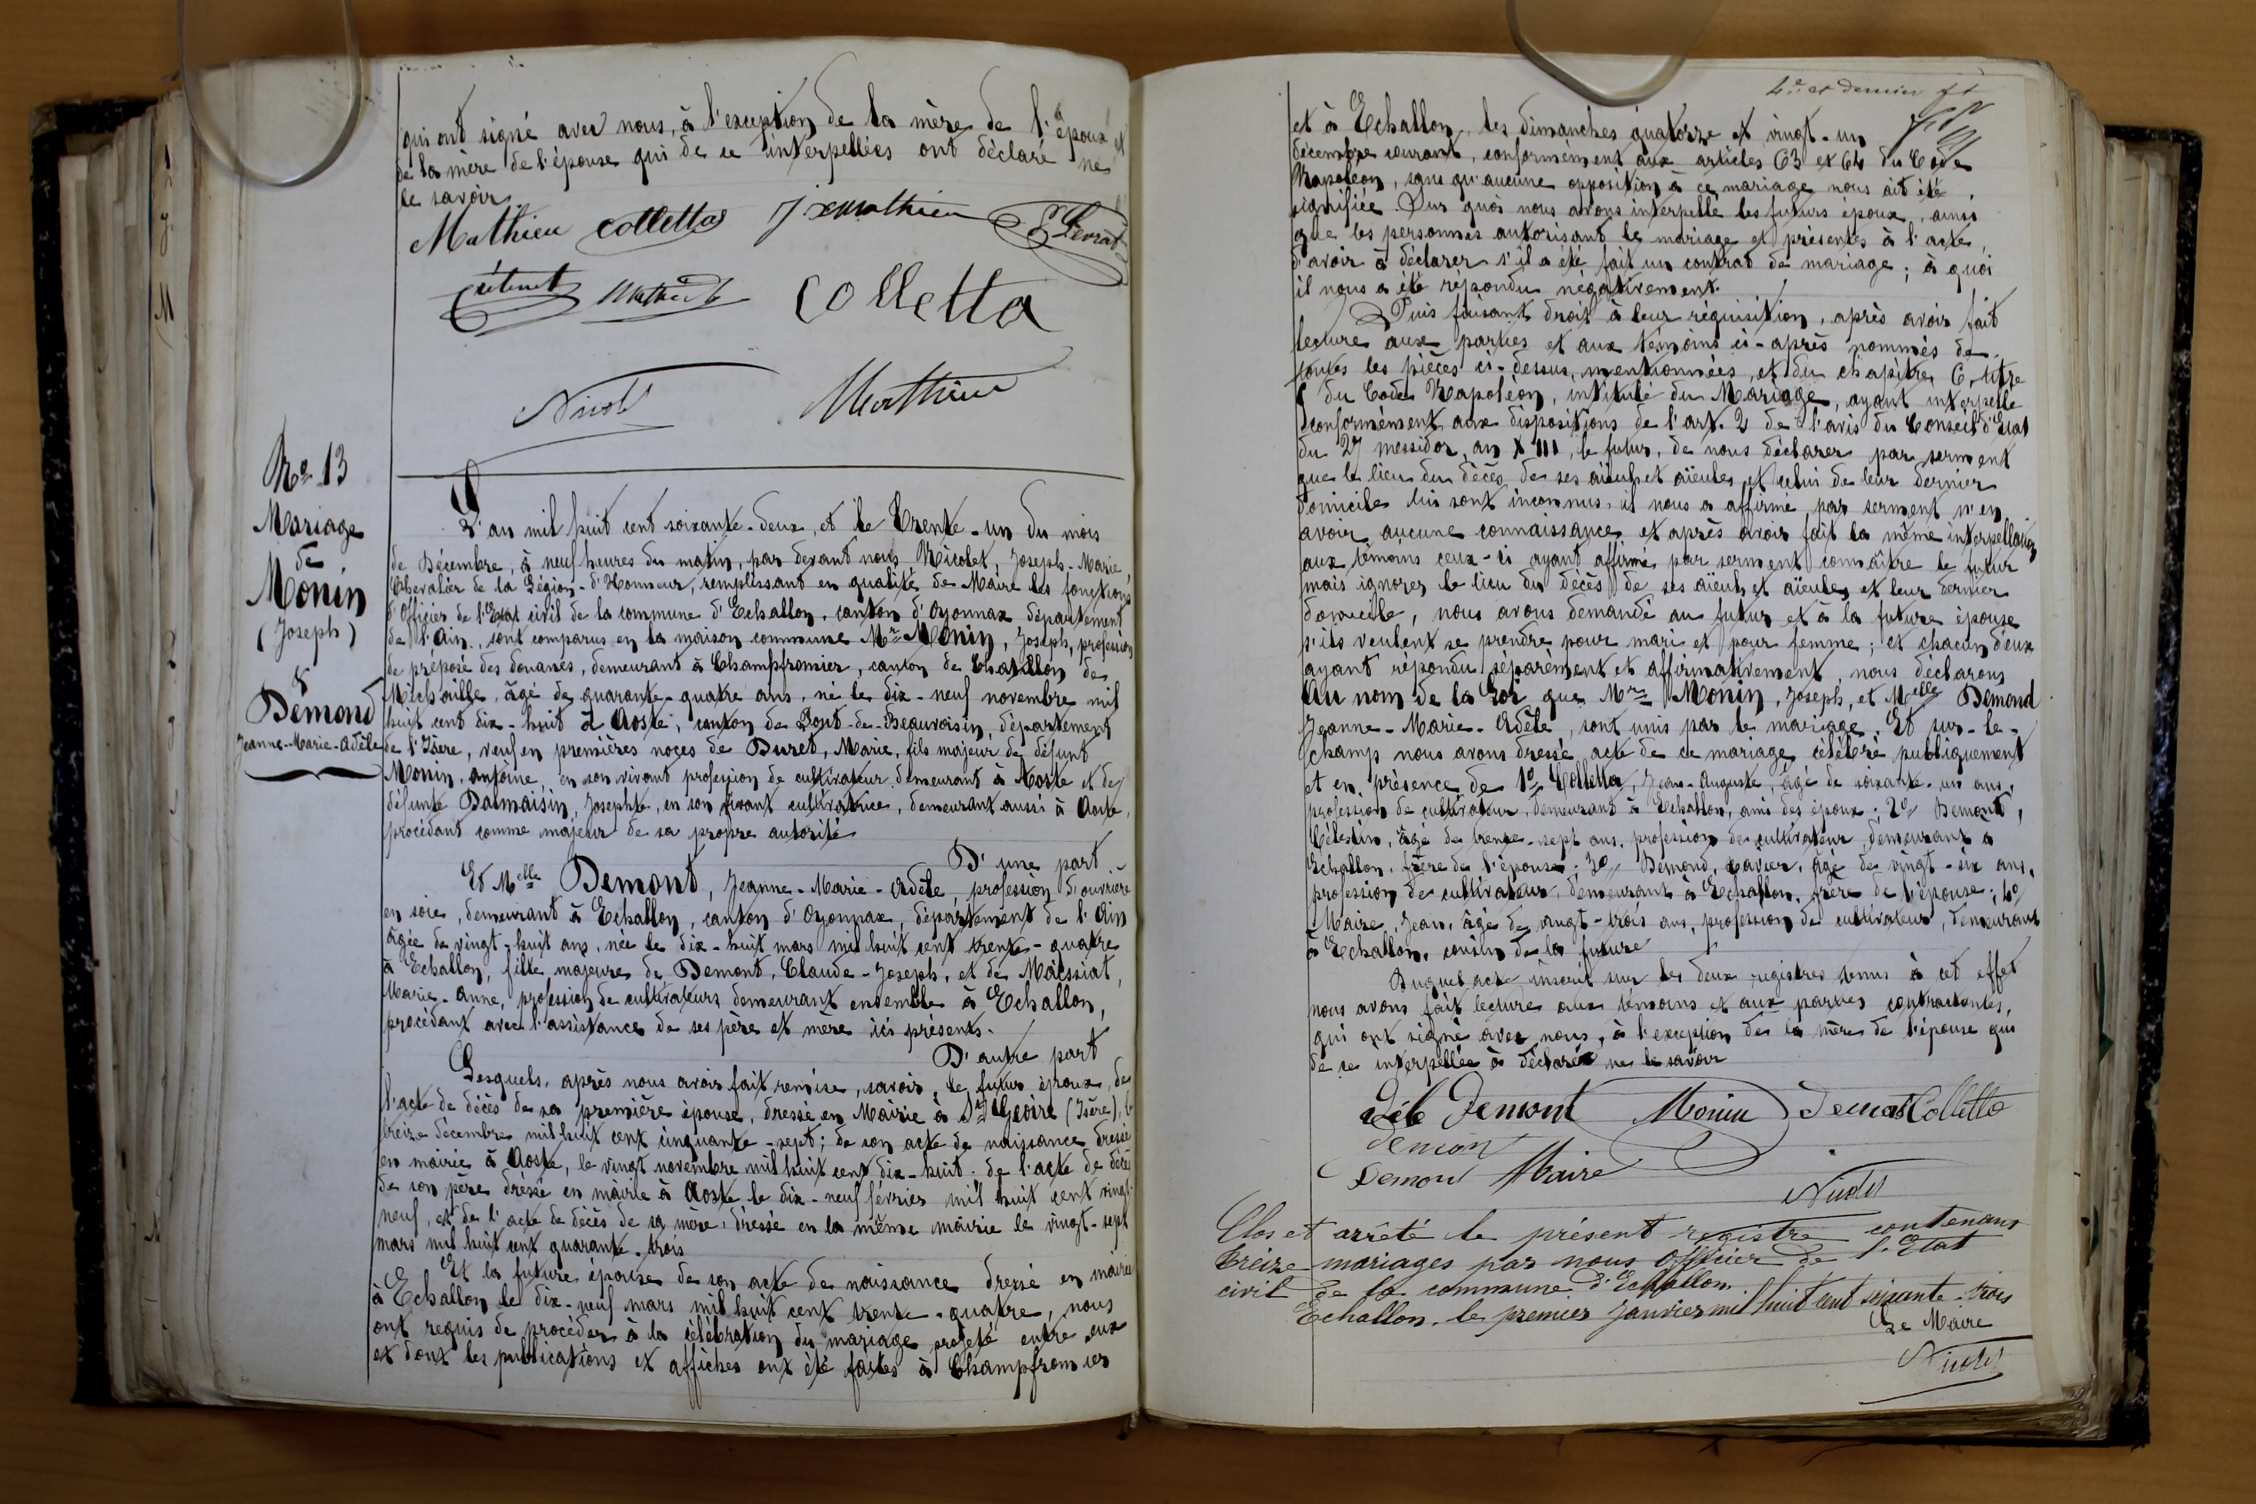 qui ont signé avec nous, à l'exception de la mère de l'époux et
de la mère de l'épouse qui de ce interpellées ont déclaré ne
le savoir.
Mathieu Colletta Mathieu
Colletta
Nicolet Mathieu
No 13
Mariage
de
Monin
(Joseph)
&
Demond
Jeanne-Marie-Adèle
L'an mil huit cent soixante-deux, et le trente-un du mois
de Décembre, à neuf heures du matin, par devant nous Nicolet, Joseph-Marie,
Chevalier de la Légion-d'Honneur, remplissant en qualité de Maire les fonctions
d'Officier de l'Etat civil de la commune d'Echallon, canton d'Oyonnax département
de l'Ain, sont comparus en la maison commune Mr Monin, Joseph, profession
de préposé des douanes, demeurant à Champfromier, canton de Chatillon de
Michaille, âgé de quarante-quatre ans, né le dix-neuf novembre mil
huit cent dix-huit à Aoste, canton de Pont-de-Beauvoisin, département
de l'Isère, veuf en premières noces de Buret, Marie, fils majeur de défunt
Monin, Antoine, en son vivant profession de cultivateur demeurant à Aoste et de
défunte Dalmaisin, Josephte, en son vivant cultivatrice, demeurant aussi à Aoste,
procédant comme majeur de sa propre autorité
D'une part
Et Melle Demont, Jeanne-Marie-Adèle, profession d'ouvrière
en soie, demeurant à Echallon, canton d'Oyonnax, département de l'Ain
âgée de vingt-huit ans, née le dix-huit mars mil huit cent trente-quatre
à Echallon, fille majeure de Demont, Claude-Joseph, et de Maissiat,
Marie-Anne, profession de cultivateurs demeurant ensemble à Echallon,
procédant avec l'assistance de ses père et mère ici présents.
D'autre part
Lesquels, après nous avoir fait remise, savoir, le futur époux, de
l'acte de décès de sa première épouse, dressé en Mairie à St Geoire (Isère), le
treize décembre mil huit cent cinquante-sept; de son acte de naissance dressé
en mairie à Aoste, le vingt novembre mil huit cent dix-huit. de l'acte de décès
de son père dressé en mairie à Aoste le dix-neuf février mil huit cent vingt-
neuf, et de l'acte de décès de sa mère, dressé en la même mairie le vingt-sept
mars mil huit cent quarante-trois
Et la future épouse de son acte de naissance dressé en mairie
à Echallon le dix-neuf mars mil huit cent trente-quatre, nous
ont requis de procéder à la célébration du mariage projeté entre eux
et dont les publications et affiches ont été faites à Champfromier
4e et dernier ft
et à Echallon, les dimanches quatorze et vingt-un
décembre courant, conformément aux articles 63 et 64 du Code
Napoléon, sans qu'aucune opposition à ce mariage nous ait été
signifiée. Sur quoi nous avons interpellé les futurs époux, ainsi
que les personnes autorisant le mariage et présentes à l'acte,
d'avoir à déclarer s'il a été fait un contrat de mariage; à quoi
il nous a été répondu négativement.
Puis faisant droit à leur réquisition, après avoir fait
lecture aux parties et aux témoins ci-après nommés de
toutes les pièces ci-dessus mentionnées, et du chapitre 6, titre
5 du Code Napoléon, intitulé du Mariage, ayant interpellé
conformément aux dispositions de l'art. 2 de l'avis du Conseil d'Etat
du 27 messidor, an XIII, le futur, de nous déclarer par serment
que le lieu du décès de ses aïeuls et aïeules, et celui de leur dernier
domicile lui sont inconnus, il nous a affirmé par serment n'en
avoir aucune connaissance et après avoir fait la même interpellation
aux témoins ceux-ci ayant affirmé par serment connaître le futur
mais ignorer le lieu du décès de ses aïeuls et aïeules et leur dernier
domicile, nous avons demandé au futur et à la future épouse
s'ils veulent se prendre pour mari et pour femme; et chacun d'eux
ayant répondu séparément et affirmativement, nous déclarons
Au nom de la Loi que Mr Monin, Joseph, et Melle Demond
Jeanne-Marie-Adèle, sont unis par le mariage. Et sur-le-
champ nous avons dressé acte de ce mariage célébré publiquement
et en présence de 1o/ Colletta, Jean-Auguste, âgé de soixante-un ans,
profession de cultivateur, demeurant à Echallon, ami des époux; 2o/ Demont,
Célestin, âgé de trente-sept ans, profession de cultivateur, demeurant à
Echallon, frère de l'épouse; 3o/ Demond, Xavier, âgé de vingt-six ans,
profession de cultivateur, demeurant à Echallon, frère de l'épouse; 4o/
Maire, Jean, âgé de vingt-trois ans, profession de cultivateur, demeurant
à Echallon, cousin de la future
Duquel acte inscrit sur les deux registres tenus à cet effet
nous avons fait lecture aux témoins et aux parties contractantes,
qui ont signé avec nous, à l'exception de la mère de l'épouse qui
de ce interpellée à déclaré ne le savoir
Demont Monin Colletta
Demont
Demont Maire
Nicolet
Clos et arrêté le présent registre contenant
treize mariages par nous Officier de l'Etat
civil de la commune d'Echallon.
Echallon, le premier Janvier mil huit cent soixante-trois
Le Maire
Nicolet